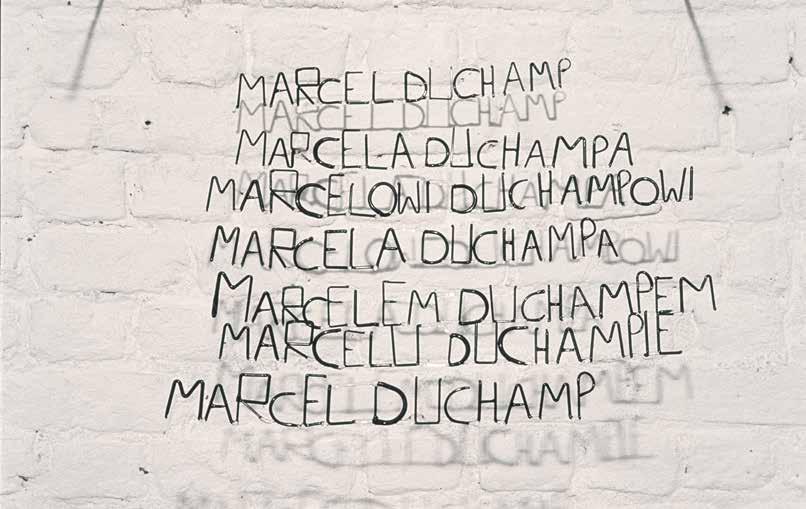 MARCEL DUCHAMP
MARCELA DUCHAMPA
MARCELOWI DUCHAMPOWI
MARCELA DUCHAMPA
MARCELEM DUCHAMPEM
MARCELU DUCHAMPIE
MARCEL DUCHAMP